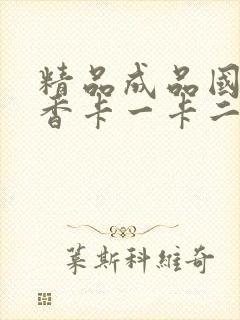 精品成品國
香卡一卡二
葉斯科維奇